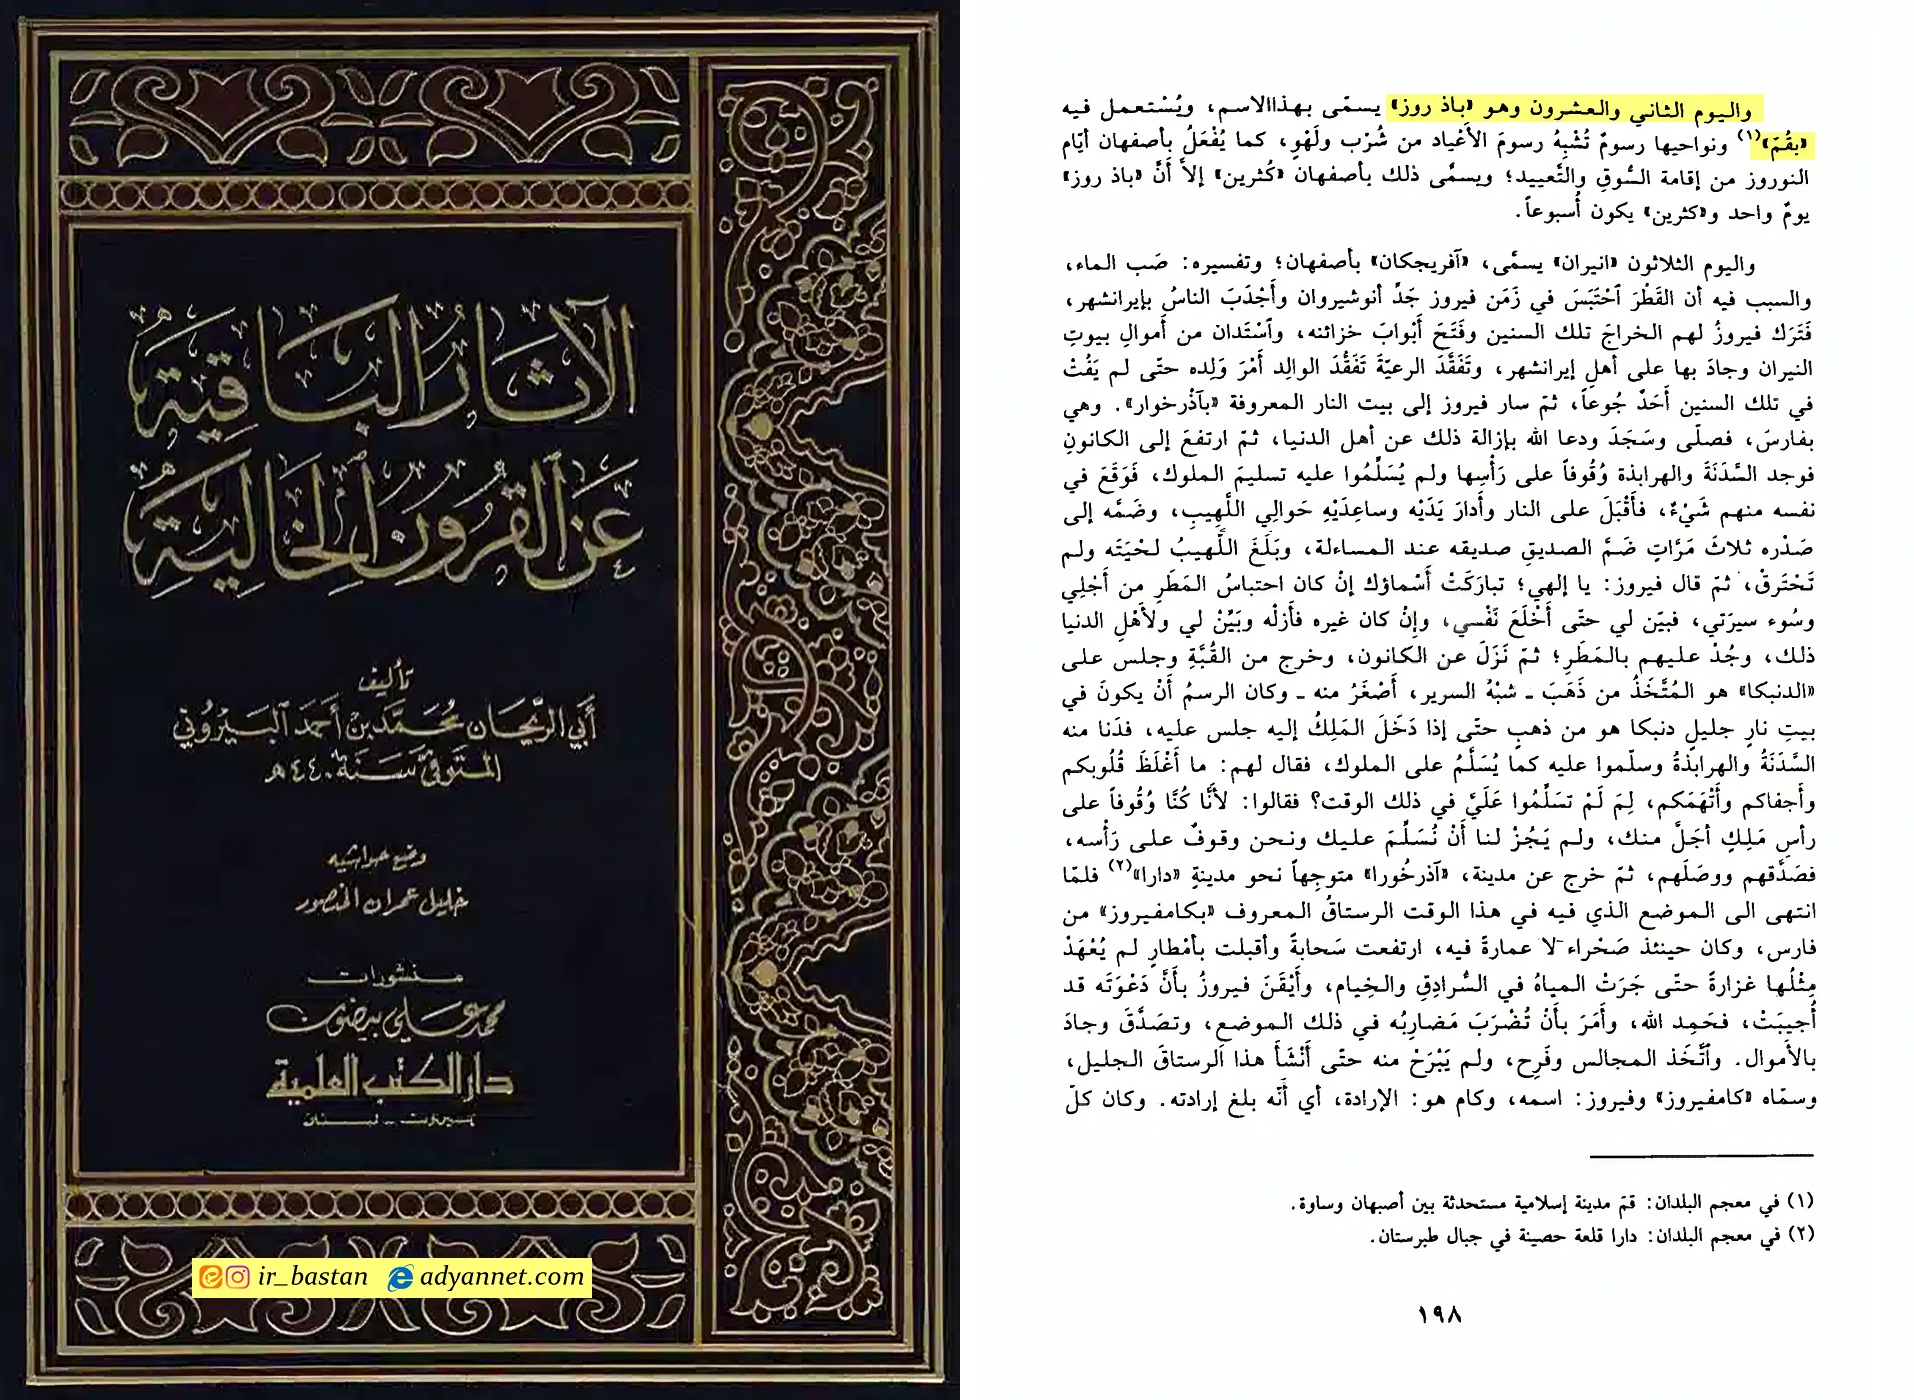 الآثار الباقية
عن القرون الخالية
تأليف
أبي الريحان محمد بن أحمد البيروني
المتوفى سنة ٤٤٠ هـ
وضع حواشيه
خليل عمران المنصور
منشورات
محمد علي بيضون
دار الكتب العلمية
بيروت - لبنان
ir_bastan adyannet.com
واليوم الثاني والعشرون وهو «باذ روز» يسمّى بهذاالاسم، ويُسْتعمل فيه
«بقُمّ»(١) ونواحيها رسومٌ تُشْبِهُ رسومَ الأَعْياد من شُرْب ولَهْوٍ، كما يُفْعَلُ بأصفهان أيّام
النوروز من إقامة السُّوقِ والتَّعييد؛ ويسمَّى ذلك بأصفهان «كُثرين» إلاَّ أَنَّ «باذ روز»
يومٌ واحد و«كثرين» يكون أُسبوعاً.
واليوم الثلاثون «انيران» يسمَّى، «آفريجكان» بأصفهان؛ وتفسيره: صَب الماء،
والسبب فيه أن القَطْرَ ٱحْتَبَسَ في زَمَن فيروز جَدِّ أنوشيروان وأَجْدَبَ الناسُ بإيرانشهر،
فَتَرَك فيروزُ لهم الخراجَ تلك السنين وفَتَحَ أَبْوابَ خزائنه، وٱسْتَدان من أَموالِ بيوتِ
النيران وجادَ بها على أهلِ إيرانشهر، وتَفَقَّدَ الرعيّةَ تَفَقُّدَ الوالِد أَمْرَ وَلِده حتّى لم يَفُتْ
في تلك السنين أَحَدٌ جُوعاً، ثمّ سار فيروز إلى بيت النار المعروفة «بآذْرخوار». وهي
بفارسَ، فصلّى وسَجَدَ ودعا الله بإزالة ذلك عن أهل الدنيا، ثمّ ارتفعَ إلى الكانونِ
فوجد السَّدَنَةَ والهرابذة وُقُوفاً على رَأْسِها ولم يُسَلِّمُوا عليه تسليمَ الملوك، فَوَقَعَ في
نفسه منهم شَيْءٌ، فأَقْبَلَ على النار وأَدارَ يَدَيْه وساعِدَيْهِ حَوالِي اللَّهِيبِ، وضَمَّه إلى
صَدْره ثلاثَ مَرَّاتٍ ضَمَّ الصديقِ صديقه عند المساءلة، وبَلَغَ اللَّهيبُ لحْيَتَه ولم
تَحْتَرِقْ، ثمّ قال فيروز: يا إلهي؛ تبارَكَتْ أَسْماؤك إنْ كان احتباسُ المَطَرِ من أَجْلِي
وسُوء سيرَتي، فبيّن لي حتّى أَخْلَعَ نَفْسي، وإنْ كان غيره فأَزلْه وبَيِّنْ لي ولأَهْلِ الدنيا
ذلك، وجُدْ عليهم بالمَطَرِ؛ ثمّ نَزَلَ عن الكانون، وخرج من القُبَّةِ وجلس على
«الدنبكا» هو المُتَّخَذُ من ذَهَبَ ـ شبْهُ السرير، أَصْغَرُ منه ـ وكان الرسمُ أَنْ يكونَ في
بيتِ نارٍ جليلٍ دنبكا هو من ذهبٍ حتّى إذا دَخَلَ المَلِكُ إليه جلس عليه، فدَنا منه
السَّدَنَةُ والهرابذةُ وسلّموا عليه كما يُسَلَّمُ على الملوك، فقال لهم: ما أَغْلَظَ قُلُوبكم
وأَجفاكم وأَتْهَمَكم، لِمَ لَمْ تسَلِّمُوا عَلَيَّ في ذلك الوقت؟ فقالوا: لأَنَّا كُنَّا وُقُوفاً على
رأسِ مَلِكٍ أجَلَّ منك، ولم يَجُزْ لنا أَنْ نُسَلِّمَ عليك ونحن وقوفٌ على رَأْسه،
فصَدَّقهم ووصَلَهم، ثمّ خرج عن مدينة، «آذرخُورا» متوجِهاً نحو مدينةٍ «دارا»(٢) فلمّا
انتهى الى الموضع الذي فيه في هذا الوقت الرستاقُ المعروف «بكامفيروز» من
فارس، وكان حينئذ صَحْراء لا عمارةَ فيه، ارتفعت سَحابةٌ وأَقبلت بأمْطارٍ لم يُعْهَدْ
مِثْلُها غزارةً حتّى جَرَتْ المياهُ في السُّرادِقِ والخِيام، وأَيْقَنَ فيروزُ بأَنَّ دَعْوَتَه قد
أُجيبَتْ، فحَمِد الله، وأَمَرَ بأَنْ تُضْرَبَ مَضارِبُه في ذلك الموضع، وتصَدَّقَ وجادَ
بالأَموال. وٱتَّخَذ المجالس وفَرِح، ولم يَبْرَحْ منه حتّى أَنْشَأَ هذا الرستاقَ الجليل،
وسمّاه «كامفيروز» وفيروز: اسمه، وكام هو: الإرادة، أي أنّه بلغ إرادته. وكان كلّ
(١) في معجم البلدان: قمّ مدينة إسلامية مستحدثة بين أصبهان وساوة.
(٢) في معجم البلدان: دارا قلعة حصينة في جبال طبرستان.
١٩٨